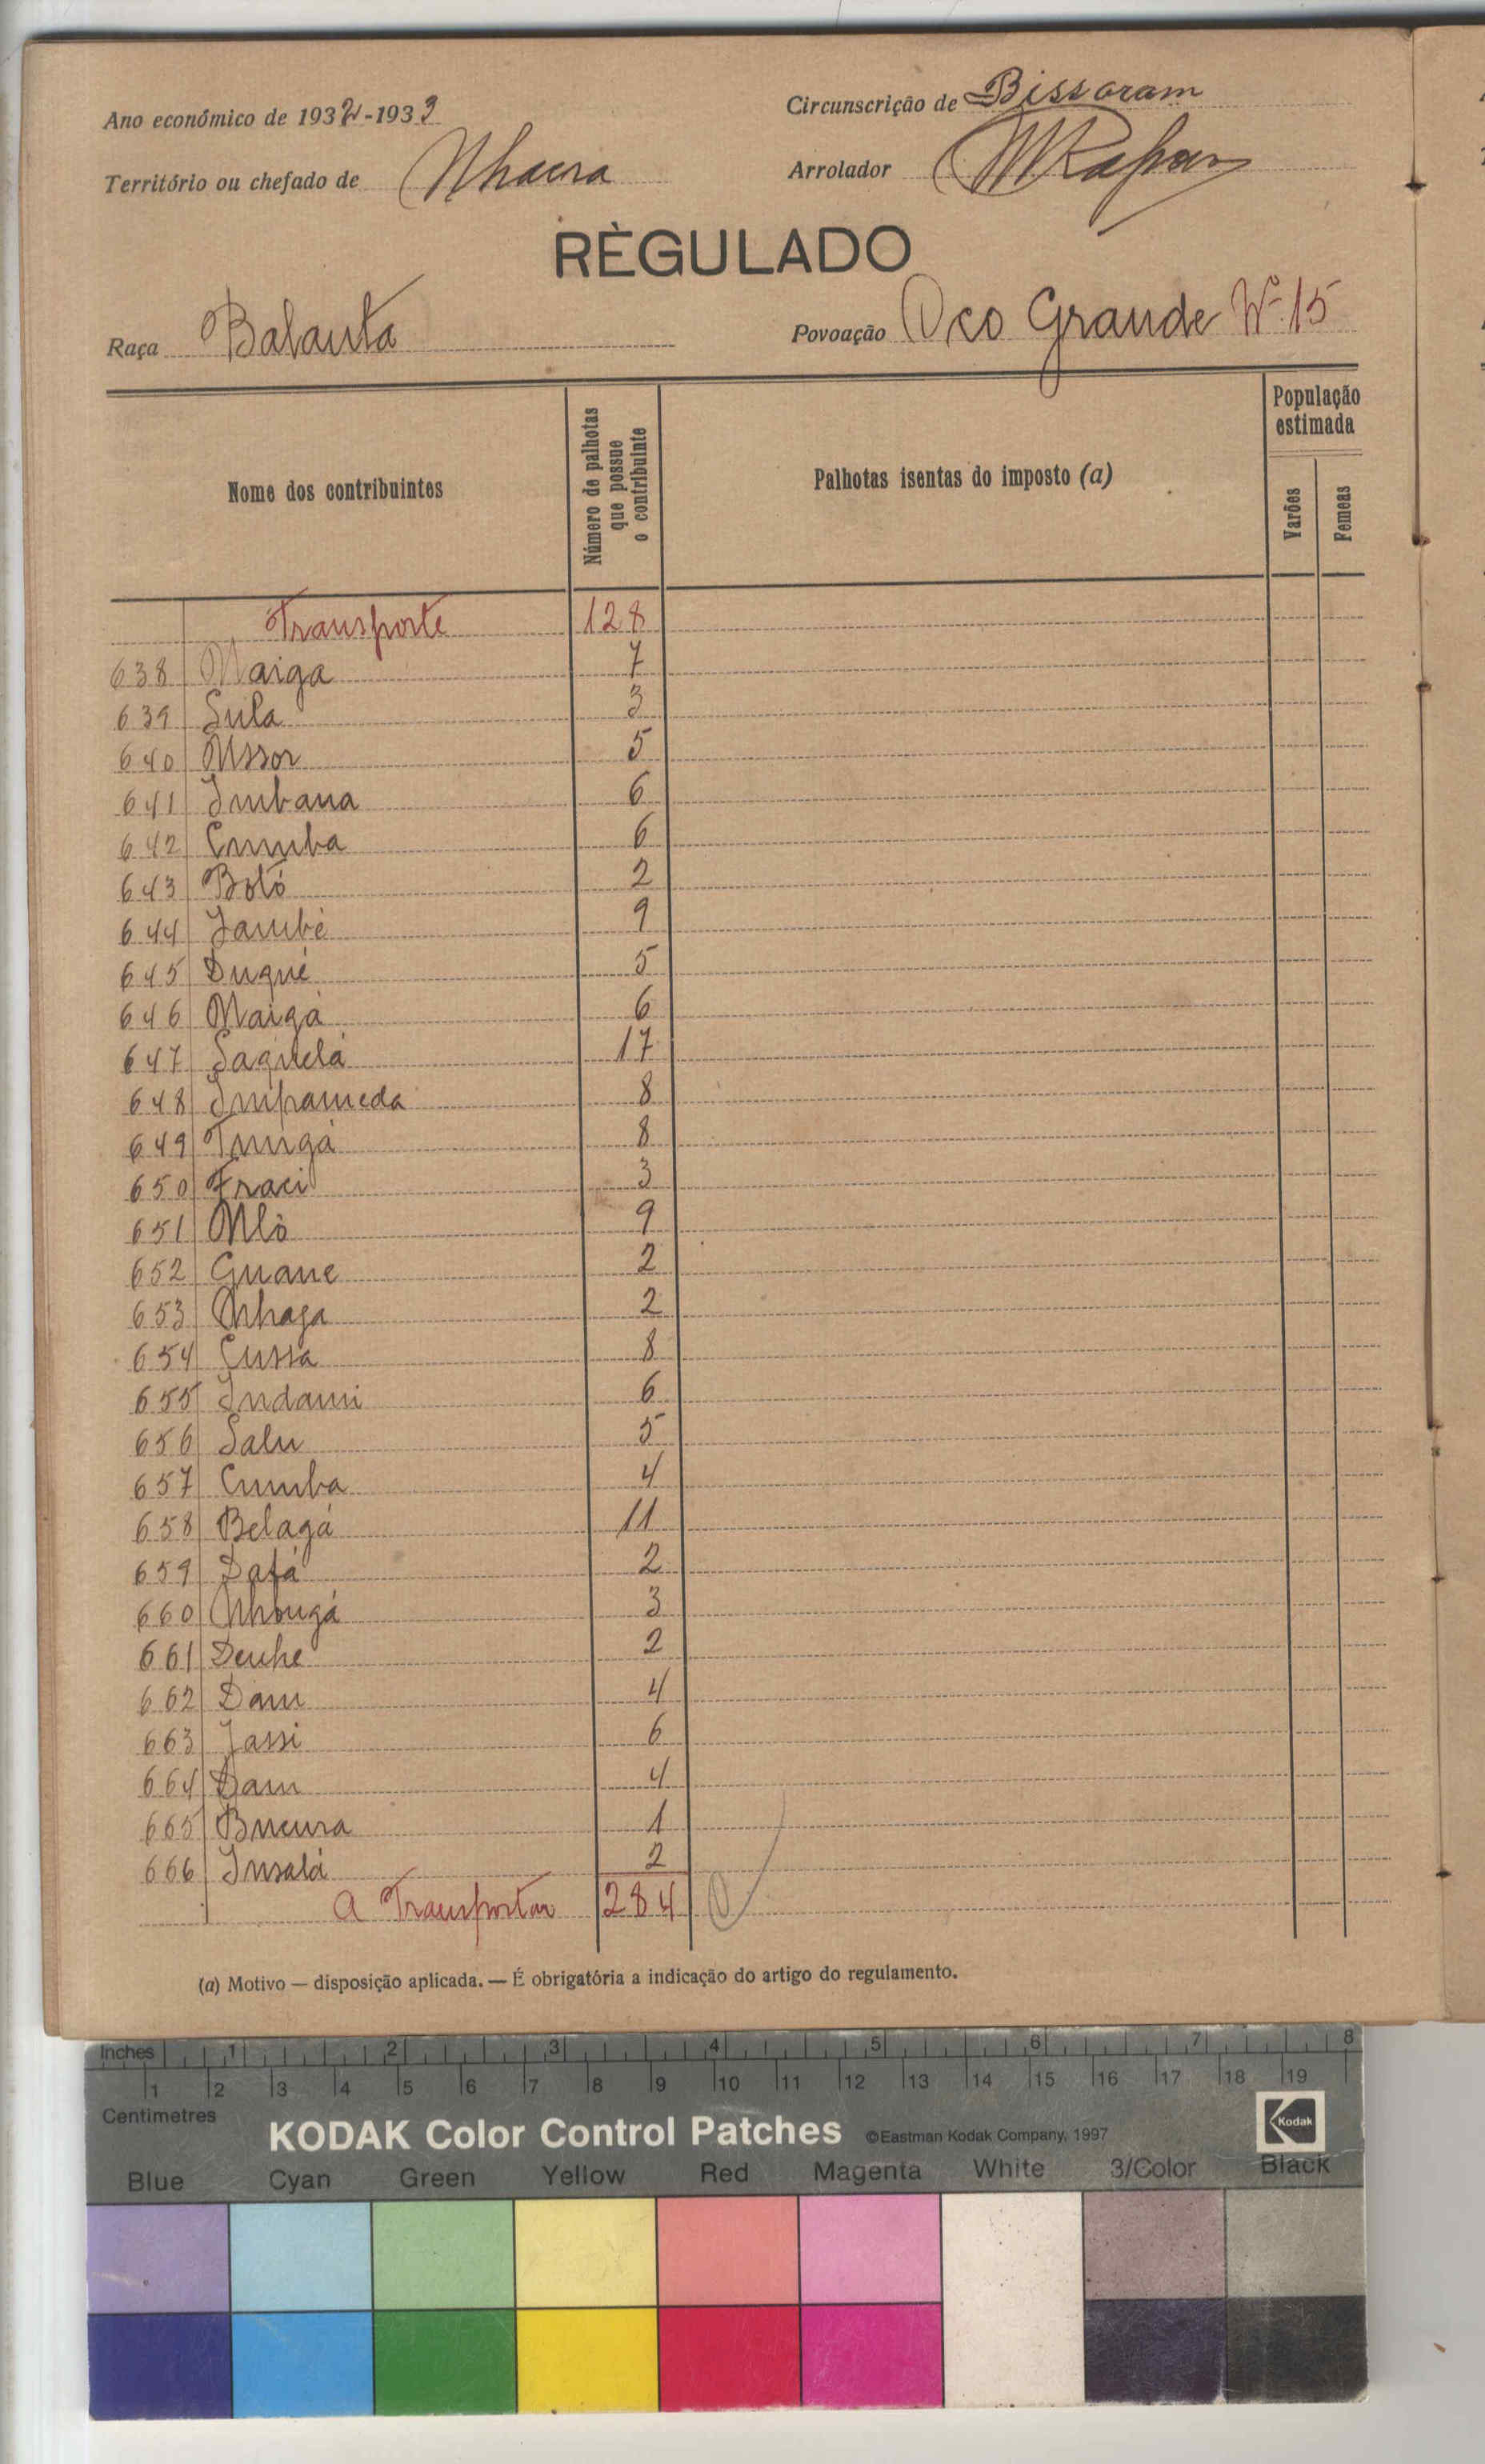 Ano económico de 1932-1933
Circunscrição de Bissoram
Território ou chefado de Nhacra
Arrolador
RÈGULADO
Raça Balanta
Povoação Oco Grande Nº 15
Nome dos contribuintes
Número de palhotas que possue o contribuinte
Palhotas isentas do imposto (a)
População estimada
Varões
Femeas
Transporte 128
638 Naiga 7
639 Sula 3
640 Nssor 5
641 Imbana 6
642 Cumba 6
643 Botó 2
644 Jambé 9
645 Duqué 5
646 Naigá 6
647 Saquelá 17
648 Imprameda 8
649 Tungá 8
650 Fraci 3
651 Nló 9
652 Guane 2
653 Nhaga 2
654 Cussa 8
655 Indami 6
656 Salu 5
657 Cumba 4
658 Belagá 11
659 Dafá 2
660 Nhongá 3
661 Denhe 2
662 Dam 4
663 Jassi 6
664 Dam 4
665 Bucura 1
666 Insalá 2
A Transportar 284
(a) Motivo — disposição aplicada. — É obrigatória a indicação do artigo do regulamento.
Inches 1 2 3 4 5 6 7 8
1 2 3 4 5 6 7 8 9 10 11 12 13 14 15 16 17 18 19
Centimetres
KODAK Color Control Patches ©Eastman Kodak Company, 1997 Kodak
Blue Cyan Green Yellow Red Magenta White 3/Color Black